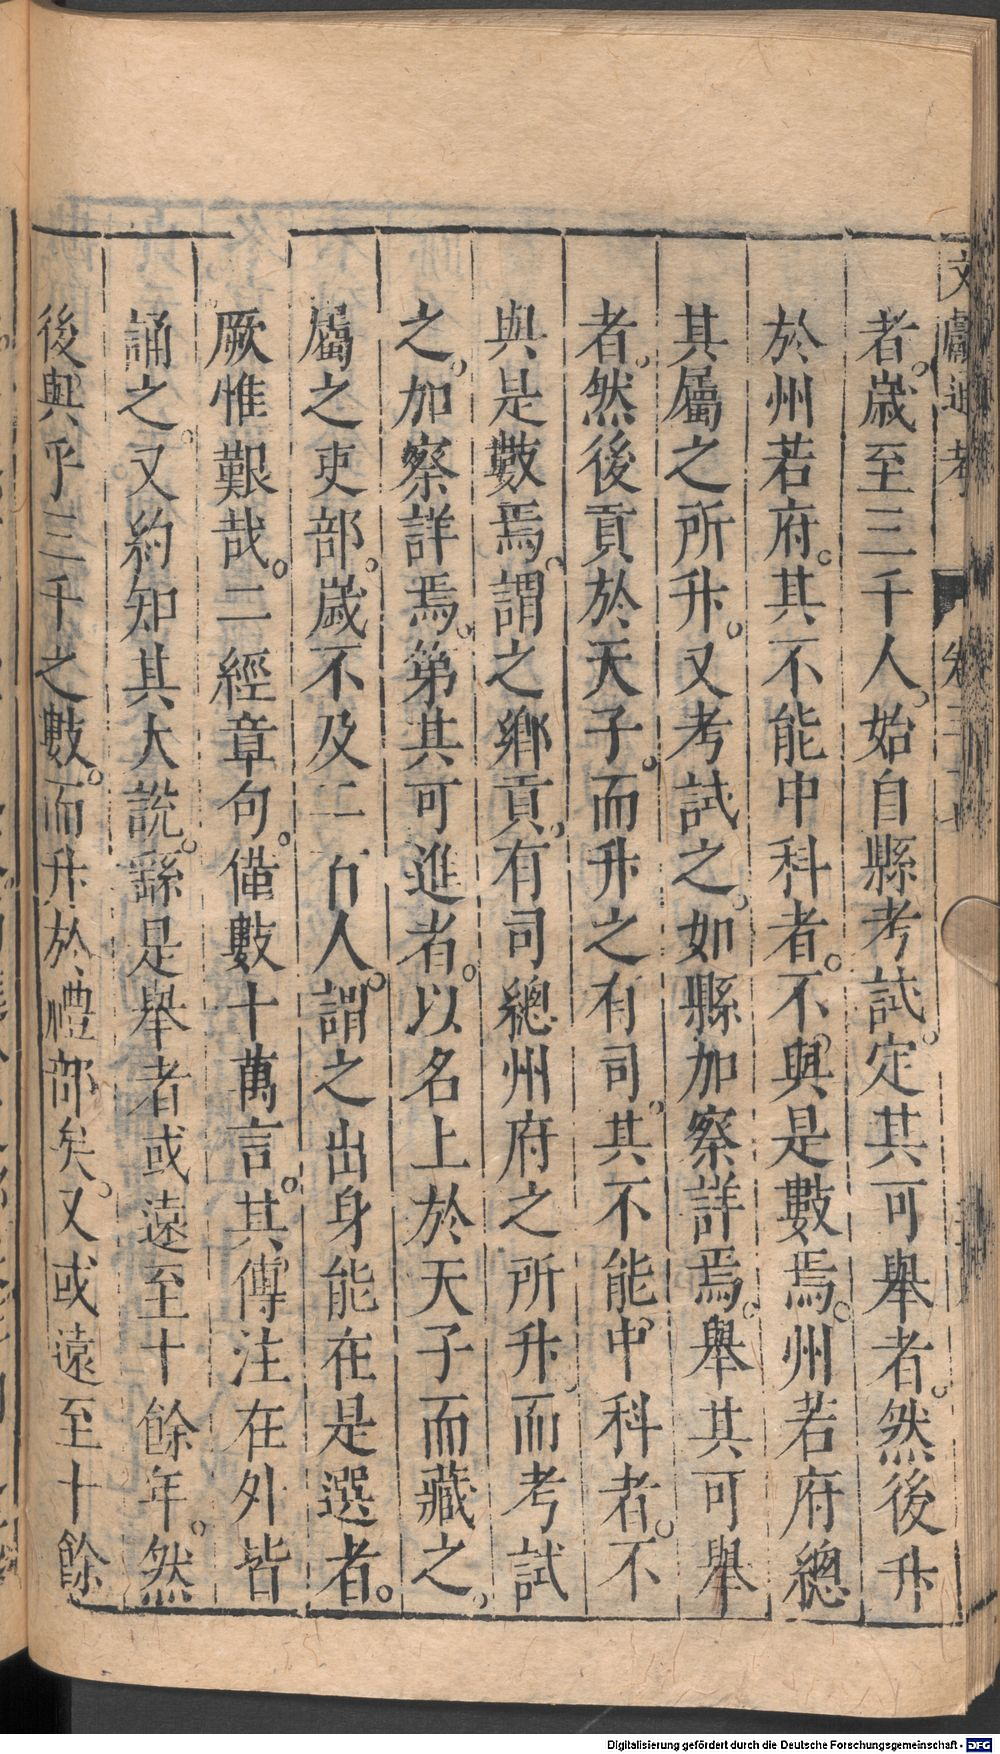 文獻通考 卷二十
者。歲至三千人。始自縣考試。定其可舉者。然後升
於州若府。其不能中科者。不與是數焉。州若府總
其屬之所升。又考試之。如縣加察詳焉。舉其可舉
者。然後貢於天子。而升之有司。其不能中科者。不
與是數焉。謂之鄉貢。有司總州府之所升而考試
之。加察詳焉。第其可進者。以名上於天子而藏之。
屬之吏部。歲不及二百人。謂之出身能在是選者。
厥惟艱哉。二經章句。僅數十萬言。其傳注在外皆
誦之。又約知其大說。繇是舉者或遠至十餘年。然
後與乎三千之數。而升於禮部矣。又或遠至十餘
Digitalisierung gefördert durch die Deutsche Forschungsgemeinschaft - DFG